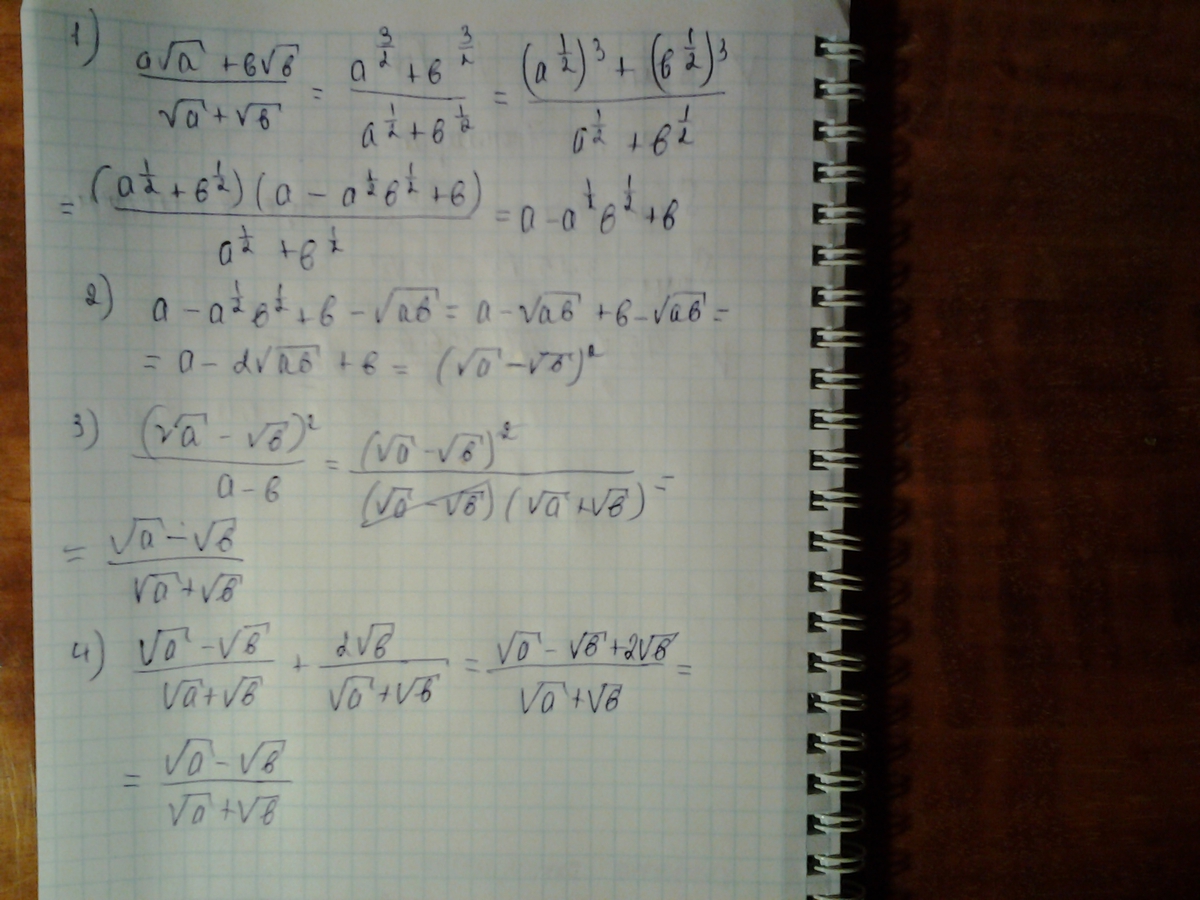 1) (a√a + в√в)/(√a + √в) = (a^(3/2) + в^(3/2))/(a^(1/2) + в^(1/2)) = ((a^(1/2))^3 + (в^(1/2))^3)/(a^(1/2) + в^(1/2))
= ((a^(1/2) + в^(1/2))(a - a^(1/2)в^(1/2) + в))/(a^(1/2) + в^(1/2)) = a - a^(1/2)в^(1/2) + в
2) a - a^(1/2)в^(1/2) + в - √(aв) = a - √(aв) + в - √(aв) =
= a - 2√(aв) + в = (√a - √в)^2
3) (√a - √в)^2/(a - в) = (√a - √в)^2/((√a - √в)(√a + √в)) =
= (√a - √в)/(√a + √в)
4) (√a - √в)/(√a + √в) + 2√в/(√a + √в) = (√a - √в + 2√в)/(√a + √в) =
= (√a - √в)/(√a + √в)